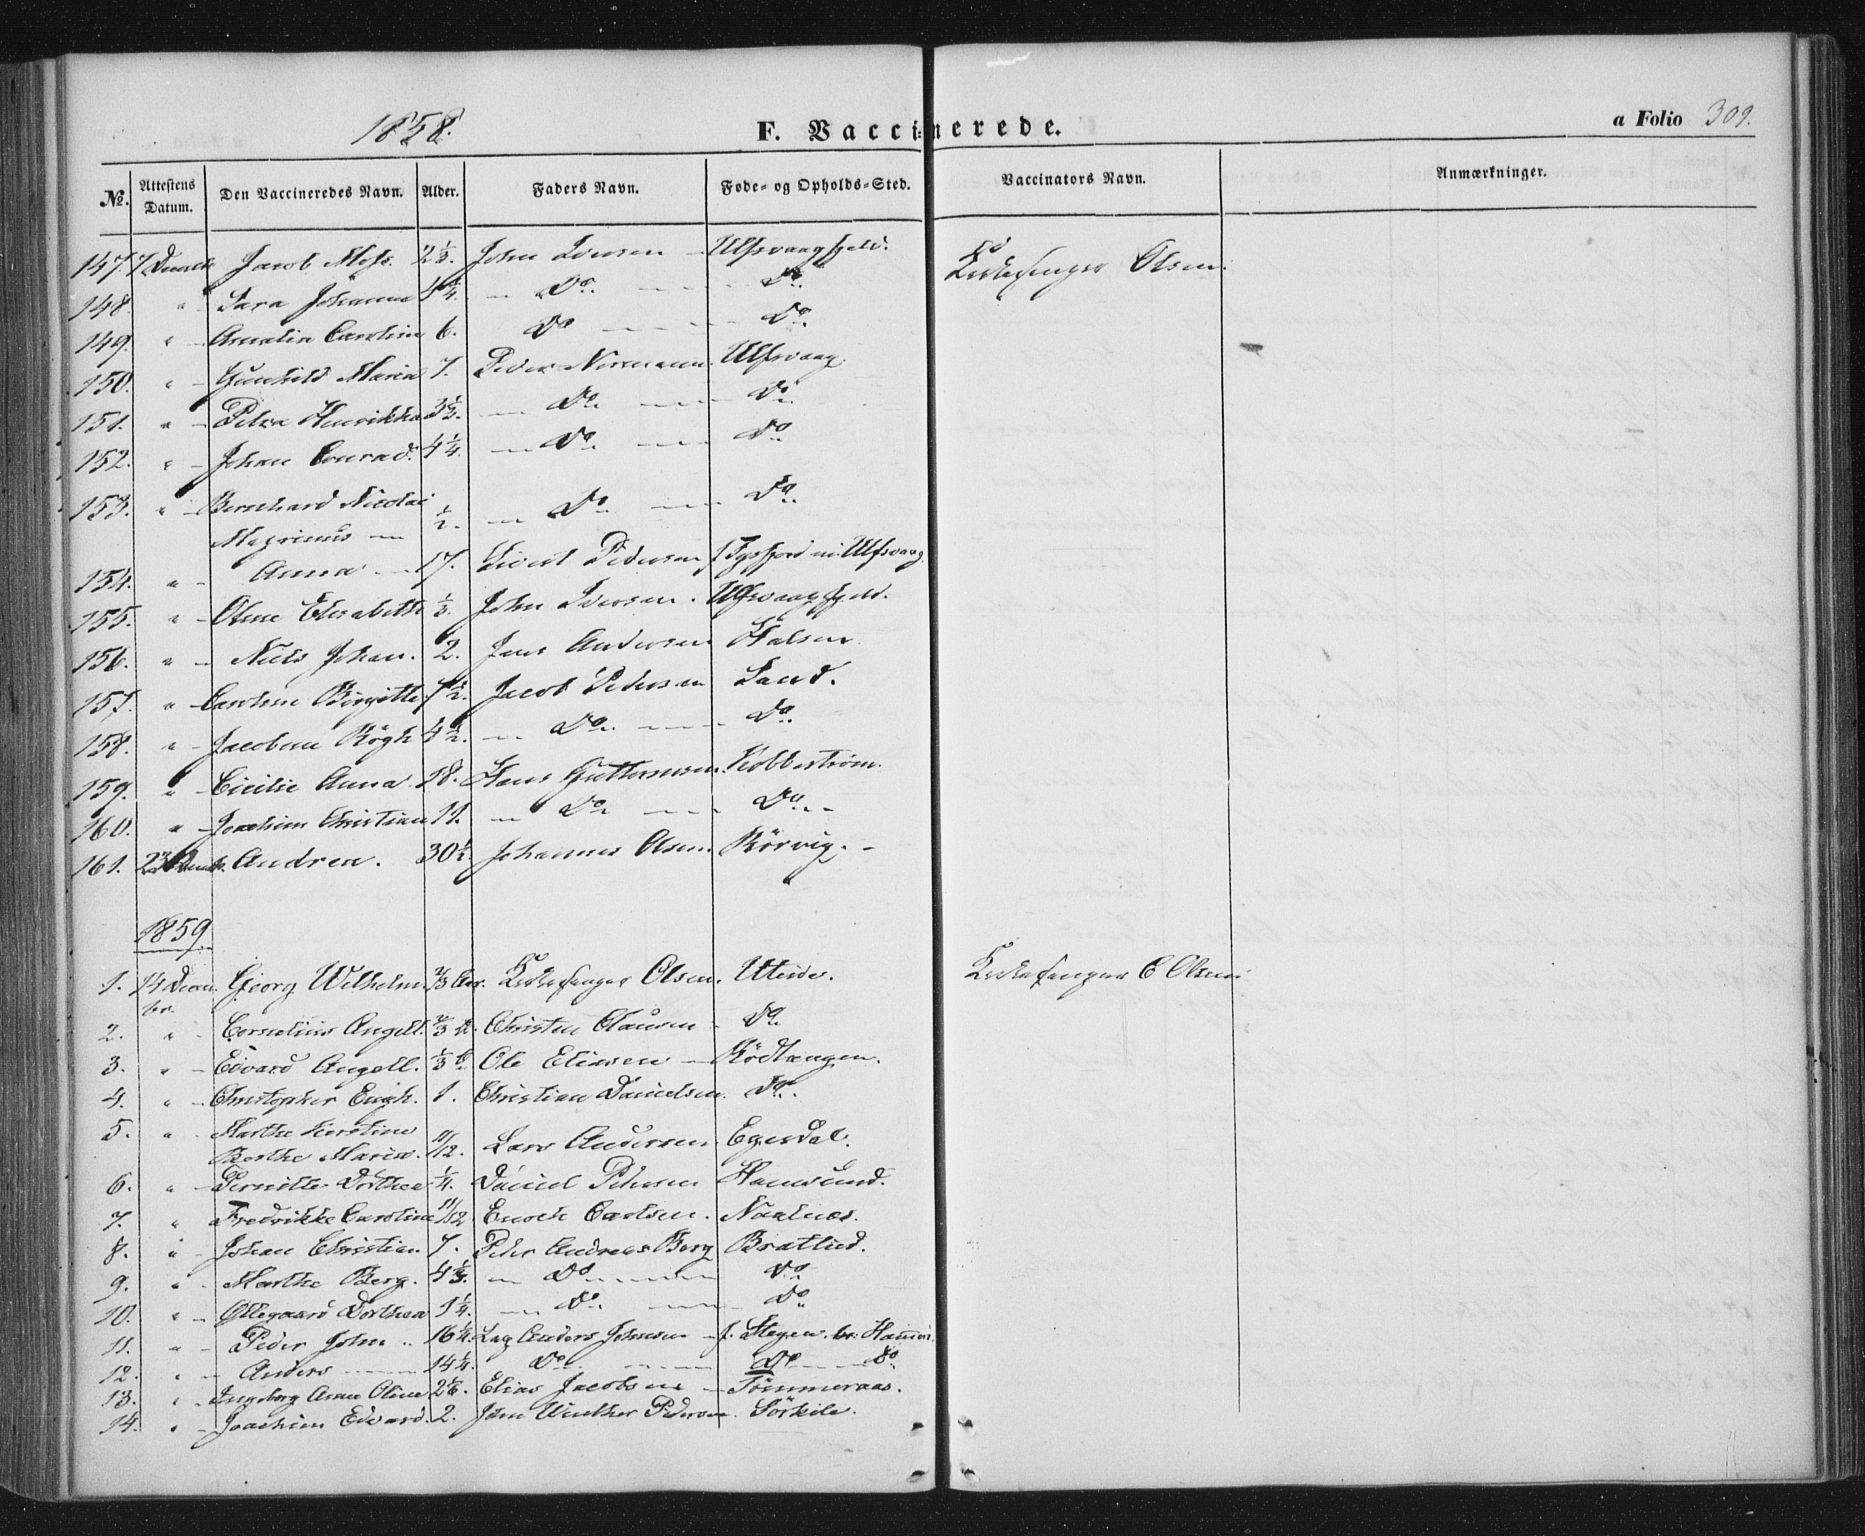 1858.
F. Vaccinerede.
a Folio 309.
No. Attestens Datum. Den Vaccineredes Navn. Alder. Faders Navn. Føde- og Opholds-Sted. Vaccinators Navn. Anmærkninger.
147. 7 Decmbr Jacob Mohs. 2 1/3. John Iversen Ulfsvaagfjeld. Kirkesanger Olsen.
148. " Sara Johanna 4 1/4. Do. Do.
149. " Amalia Caroline 6. Do Do.
150. " Gunhild Maria 7. Peder Normann. Ulfsvaag.
151. " Petra Henrikka 3 1/3. Do. Do.
152. " Johan Conrad. 4 1/4. Do. Do
153. " Bernhard Nicolai
Magrinus 1/2. Do. Do.
154. " Anna 17. Sivert Pedersen f. Tysfjord in Ulfsvaag
155. " Oline Elisabeth 1/3. John Iversen. Ulfsvaagfjeld.
156. " Niels Johan. 2. Jens Andersen Halsen.
157. " Caroline Birgitte. 7 1/2. Jacob Pedersen Sand.
158. " Jacobine Rögh 4 1/2. Do. Do.
159. " Cicilie Anna. 18. Hans Guttormsen. Kobbestrøm.
160. " Joachim Christian 11. Do. Do.
161. 23 Decmbr. Andrea. 30 1/2. Johannes Olsen. Rörvig.
1859.
1. 14 Decem Georg Wilhelm. 2/3 Aar. Kirkesanger Olsen. Uteide. Kirkesanger C Olsen
br.
2. " Cornelius Angell. 2/3 Christen Clausen Do.
3. " Edvard Angell. 1/3 Ole Eliasen Rödtangen.
4. " Christopher Engh. 1. Christian Danielsen. Do.
5. " Marthe Kirstine
Berthe Maria. 11/12. Lars Andersen Egedal.
6. " Pernille Dorthea 1/4. Daniel Petersen Hamsund.
7. " Fredrikke Caroline 11/12 Enoch Carlsen. Naalnes.
8. " Johan Christian 7. Peder Andreas Berg Bratlied.
9. " Marthe Berg. 4 1/3. Do. Do
10. " Ollegaard Dorthea 1 1/4. Do. Do
11. " Peder John 16 1/4. Lap Anders Johnsen f. Stegen. br. Hamerö.
12. " Anders 14 1/4. Do. Do do.
13. " Ingeborg Anne Oline 2 1/6. Elias Jacobsen Tömmeraas.
14. " Joachim Edvard. 2. John Winther Pedersen. Sörkile.